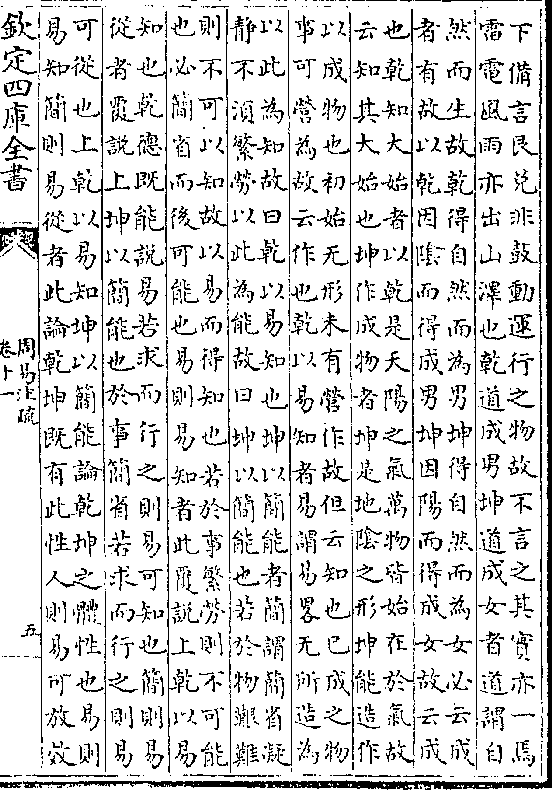 下備言艮兊非鼓動運行之物故不言之其實亦一焉
雷電風雨亦出山澤也乾道成男坤道成女者道謂自
然而生故乾得自然而為男坤得自然而為女必云成
者有故以乾因隂而得成男坤因陽而得成女故云成
也乾知大始者以乾是天陽之氣萬物皆始在於氣故
云知其大始也坤作成物者坤是地隂之形坤能造作
以成物也初始无形未有營作故但云知也已成之物
事可營為故云作也乾以易知者易謂易畧无所造為
以此為知故曰乾以易知也坤以簡能者簡謂簡省凝
靜不須繁勞以此為能故曰坤以簡能也若於物艱難
則不可以知故以易而得知也若於事繁勞則不可能
也必簡省而後可能也易則易知者此覆說上乾以易
知也乾德既能說易若求而行之則易可知也簡則易
從者覆說上坤以簡能也於事簡省若求而行之則易
可從也上乾以易知坤以簡能論乾坤之體性也易則
易知簡則易從者此論乾坤既有此性人則易可放效
欽定四庫全書
周易注疏
卷十一
五